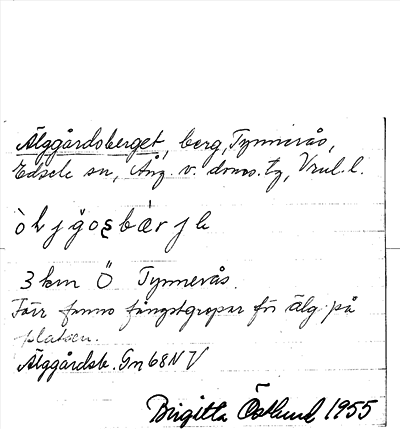 Älggårdsberget, berg, Tynnerås,
Edsele sn, Ång. v. doms. tg, Vnl. l.
3 km Ö Tynnerås.
Förr fanns fångstgropar för älg på
platsen.
Älggårdsb. Gn 68 NV
Birgitta Östlund 1955